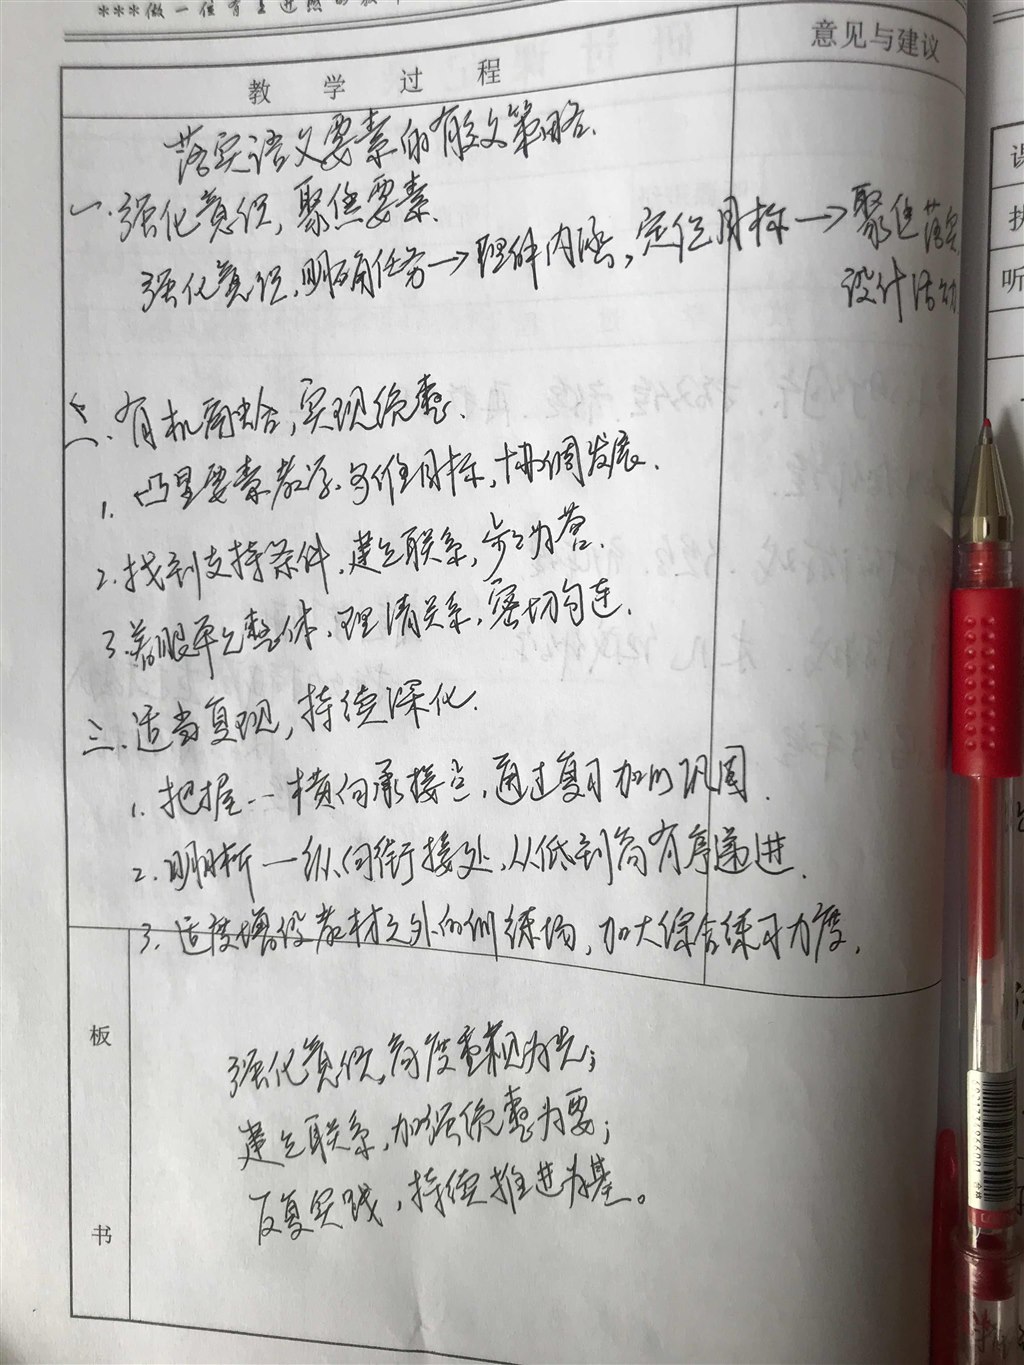 ***做一位有上进心的教师
教 学 过 程
意见与建议
落实语文要素的有效策略.
一.强化意识,聚焦要素.
强化意识,明确任务→理解内涵,定位目标→聚焦落实
设计活动
二.有机融合,实现统整.
1.凸显要素教学,多维目标,协调发展.
2.找到支持条件,建立联系,步步为营.
3.着眼单元整体,理清关系,密切勾连.
三.适当复现,持续深化.
1.把握一横向承接点,通过复习加以巩固.
2.明晰一纵向衔接处,从低到高有序递进.
3.适度增设教材之外的训练场,加大综合练习力度.
板
书
强化意识,高度重视为先;
建立联系,加强统整为要;
反复实践,持续推进为基。
听